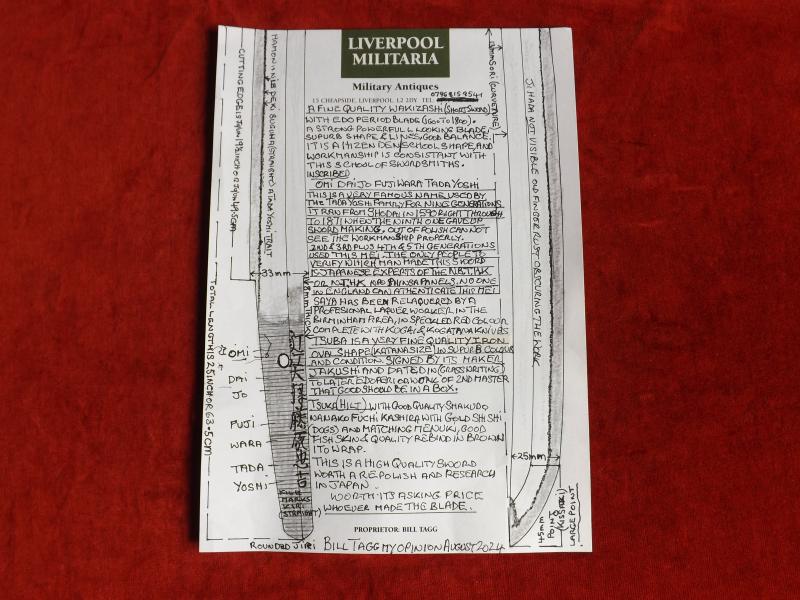 LIVERPOOL
MILITARIA
Military Antiques
13 CHEAPSIDE, LIVERPOOL, L2 2DY TEL
A FINE QUALITY WAKIZASHI (SHORT SWORD)
WITH EDO PERIOD BLADE (1600 TO 1800).
A STRONG POWERFULL LOOKING BLADE,
SUPURB SHAPE & LINES, GOOD BALANCE.
IT IS A HIZEN DEN SCHOOL SHAPE, AND
WORKMANSHIP IS CONSISTANT WITH
THIS SCHOOL OF SWORDSMITHS.
INSCRIBED
OMI DAI JO FUJIWARA TADA YOSHI
THIS IS A VERY FAMOUS NAME USED BY
THE TADA YOSHI FAMILY FOR NINE GENERATIONS
IT RAN FROM SHODAI IN 1590 RIGHT THROUGH
TO 1871 WHEN THE NINTH ONE GAVE UP
SWORD MAKING. OUT OF POLISH CANNOT
SEE THE WORKMANSHIP PROPERLY.
2ND & 3RD PLUS 4TH & 5TH GENERATIONS
USED THIS MEI. THE ONLY PEOPLE TO
VERIFY WHICH MAN MADE THIS SWORD
IS JAPANESE EXPERTS OF THE N.B.T.H.K
OR N.T.H.K. AND SHINSA PANELS, NO ONE
IN ENGLAND CAN AUTHENTICATE THIS MEI
SAYA HAS BEEN RELAQUERED BY A
PROFESIONAL LAQUER WORKER IN THE
BIRMINHAM AREA, IN SPECKLED RED COLOUR
COMPLETE WITH KOGAI & KOGATANA KNIVES
TSUBA IS A VERY FINE QUALITY IRON
OVAL SHAPE (KATANA SIZE) IN SUPURB COLOUR
AND CONDITION. SIGNED BY ITS MAKER
JAKUSHI AND DATED IN (GRASS WRITING)
TO LATER EDO PERIOD WORK OF 2ND MASTER
THAT GOOD SHOULD BE IN A BOX.
TSUKA (HILT) WITH GOOD QUALITY SHAKUDO
NANAKO FUCHI KASHIRA WITH GOLD SHI SHI
(DOGS) AND MATCHING MENUKI, GOOD
FISH SKIN & QUALITY REBIND IN BROWN
ITO WRAP.
THIS IS A HIGH QUALITY SWORD
WORTH A REPOLISH AND RESEARCH
IN JAPAN.
WORTH ITS ASKING PRICE
WHOEVER MADE THE BLADE.
PROPRIETOR: BILL TAGG
BILL TAGG MY OPINION AUGUST 2024
TOTAL LENGTH IS 25 INCH OR 63.5cm
33mm
OMI
DAI
JO
FUJI
WARA
TADA
YOSHI
FILE
MARKS
KIRI
(STRAIGHT)
ROUNDED JIRI
SORI (CURVATURE)
JI HADA NOT VISIBLE OLD FINGER RUST OBSCURING THE WORK
25mm
45mm
POINT
(KISSAKI)
LARGE POINT